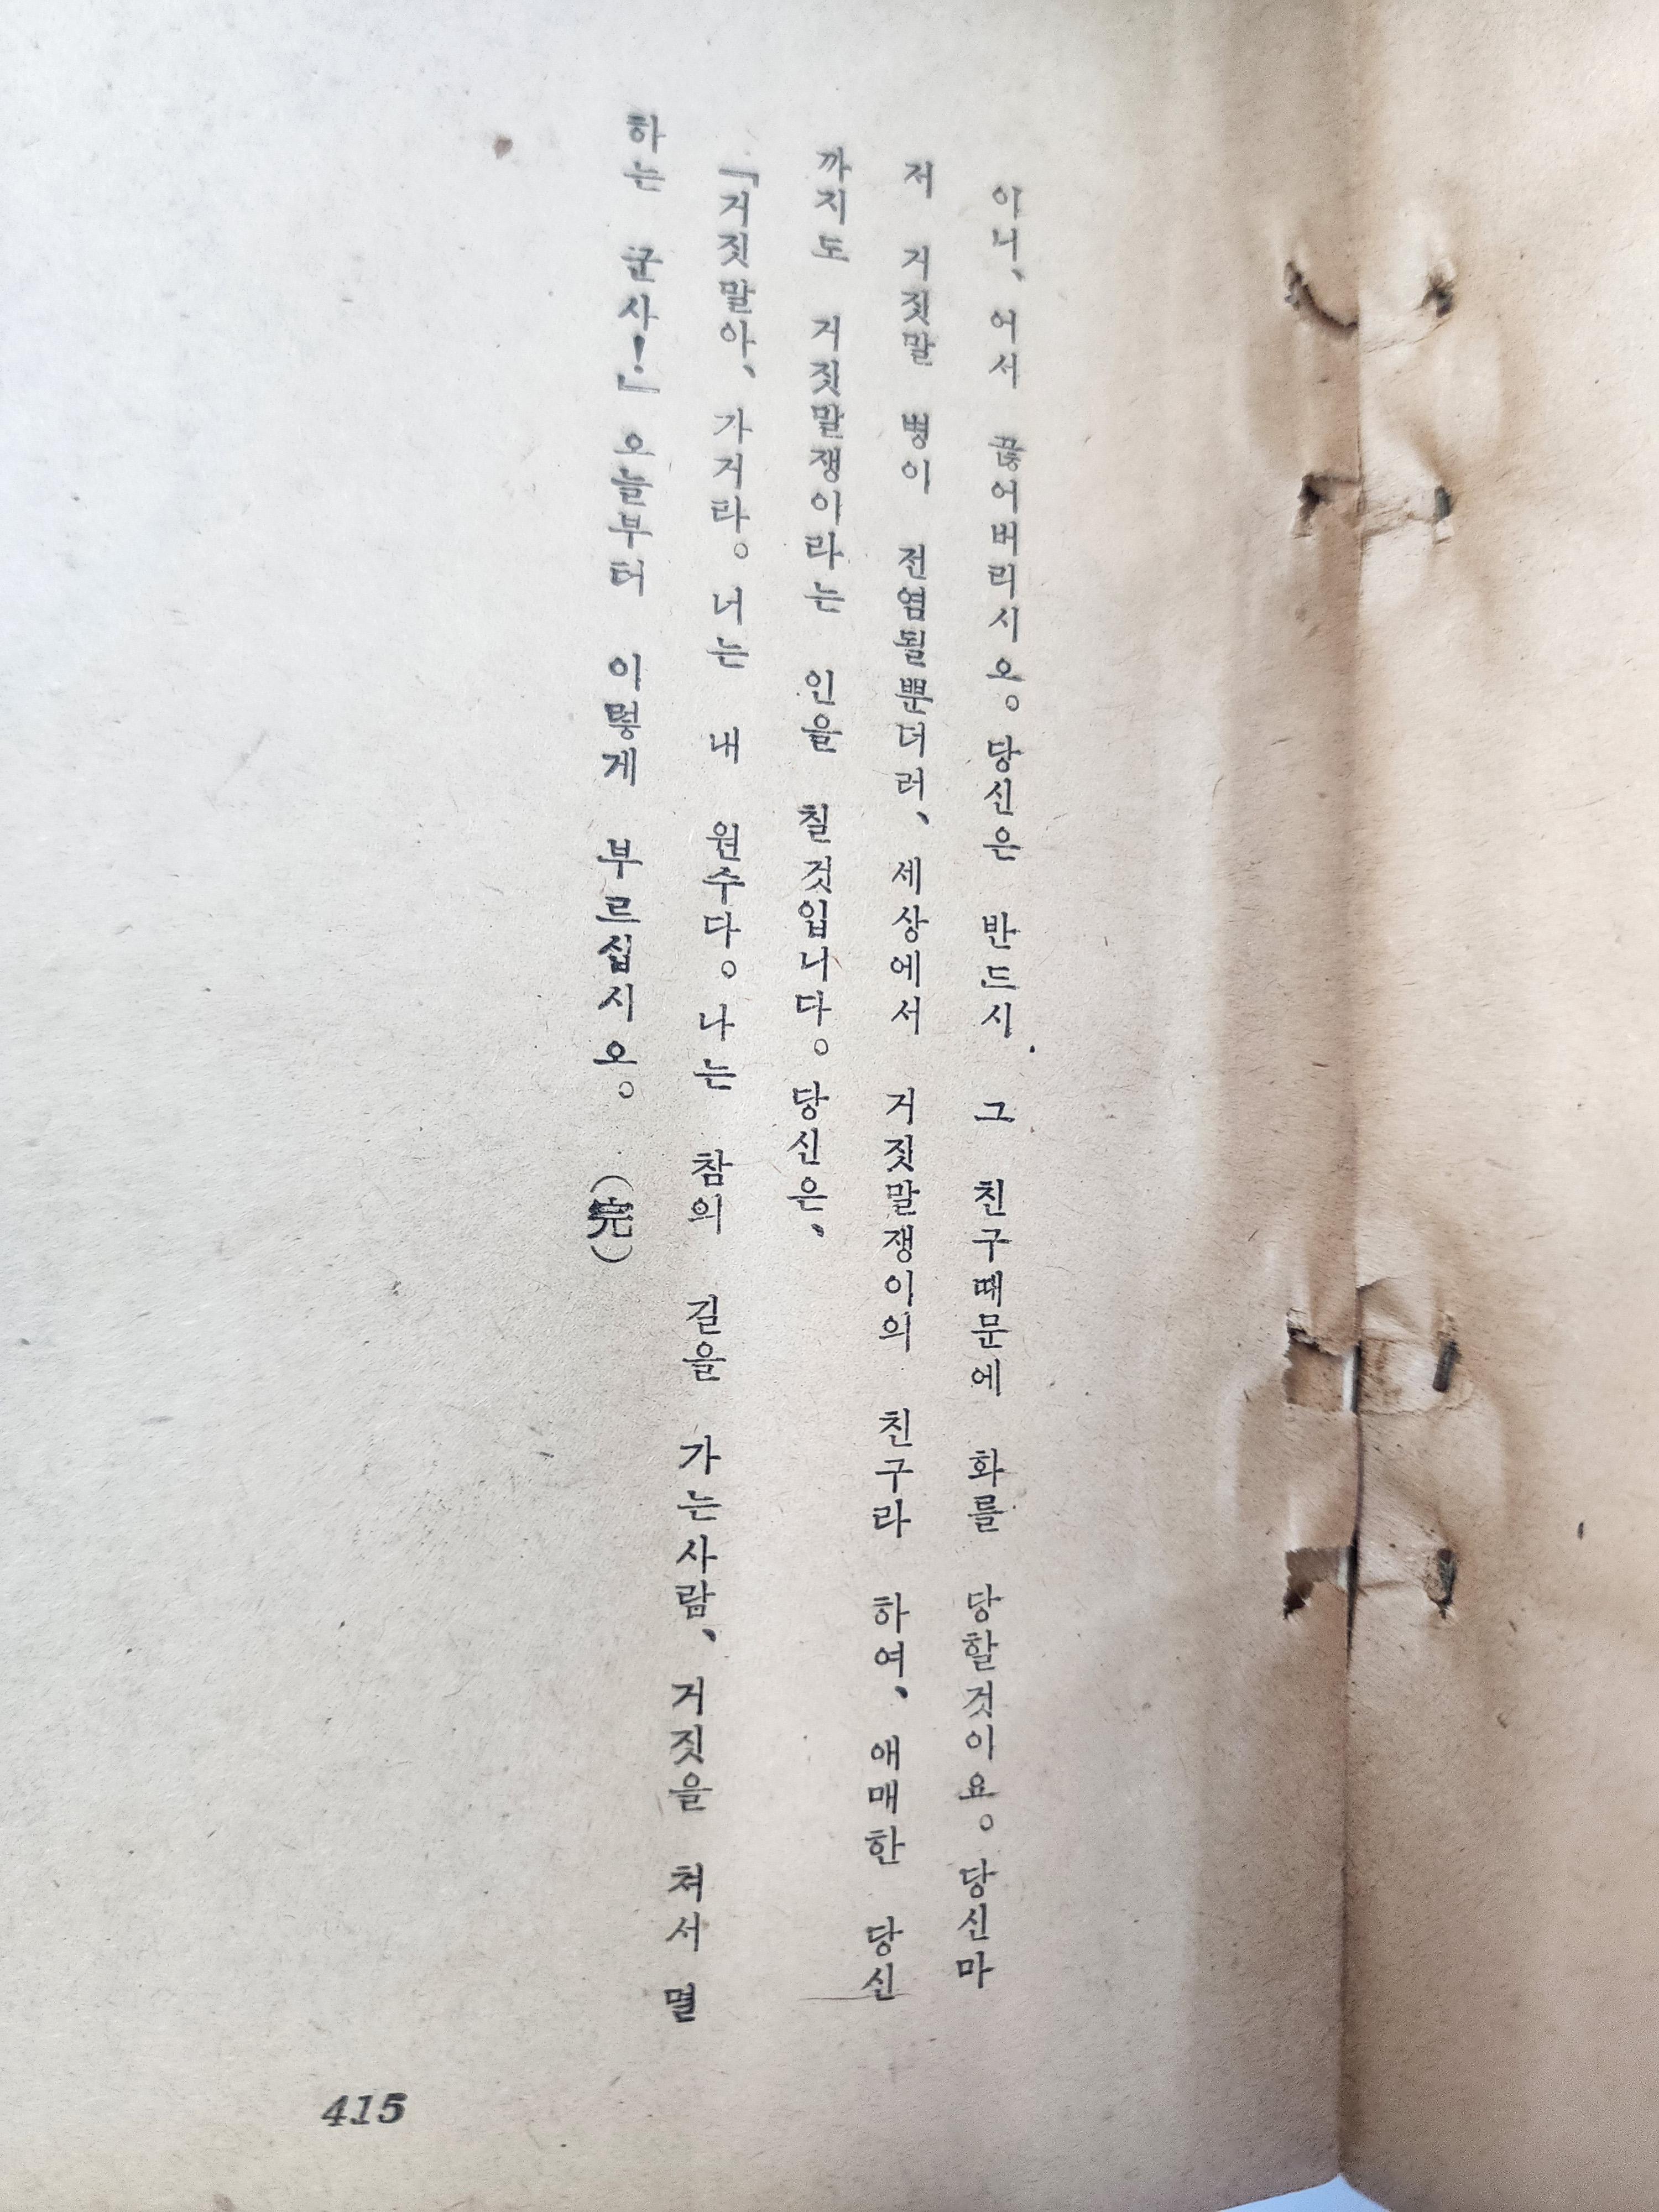 아니、어서 끊어버리시오。당신은 반드시 그 친구때문에 화를 당할것이요。당신마
저 거짓말 병이 전염될뿐더러、세상에서 거짓말쟁이의 친구라 하여、애매한 당신
까지도 거짓말쟁이라는 인을 칠것입니다。당신은、
「거짓말아、가거라。너는 내 원수다。나는 참의 길을 가는사람、거짓을 쳐서 멸
하는 군사!」오늘부터 이렇게 부르십시오。 (完)
415